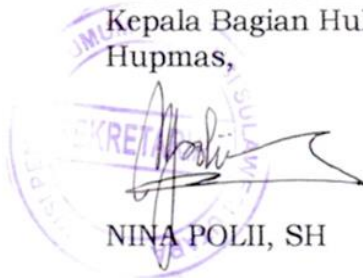 Kepala Bagian Hu
Hupmas,
NINA POLII, SH